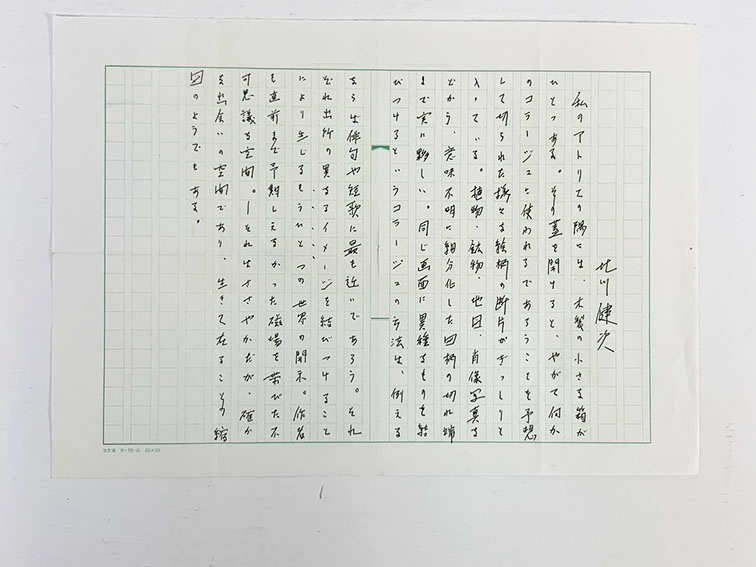 北川健次
私のアトリエの隅には、木製の小さな箱が
ひとつある。その蓋を開けると、やがて何か
のコラージュに使われるであろうことを予想
して切られた様々な絵柄の断片がぎっしりと
入っている。植物、鉱物、地図、肖像写真な
どから、意味不明に細分化した図柄の切れ端
まで実に夥しい。同じ画面に異種なるものを結
びつけるというコラージュの方法は、例える
ならば俳句や短歌に最も近いであろう。それ
ぞれ出所の異なるイメージを結びつけること
により生じるもうひとつの世界の開示。作者
も直前まで予期しえなかった磁場を帯びた不
可思議な空間。―それはささやかだが、確か
な出会いの空間であり、生きて在ることの縮
図のようでもある。
コクヨ ケ-70 20×20